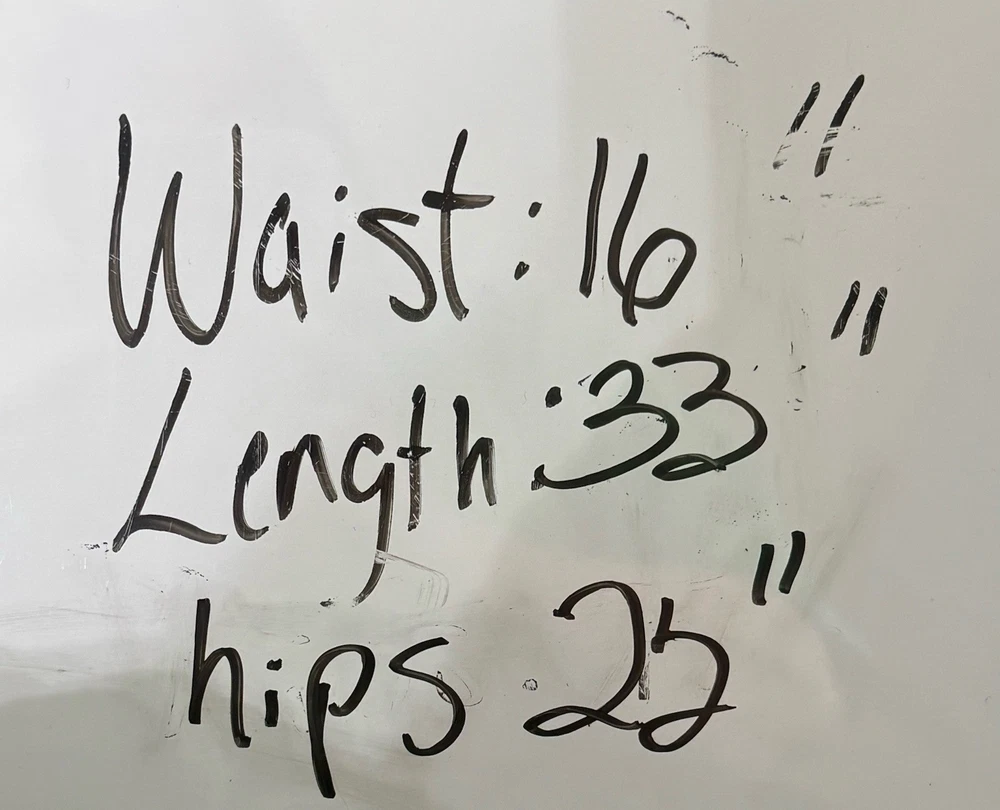 Waist: 16"
Length: 33"
hips: 25"